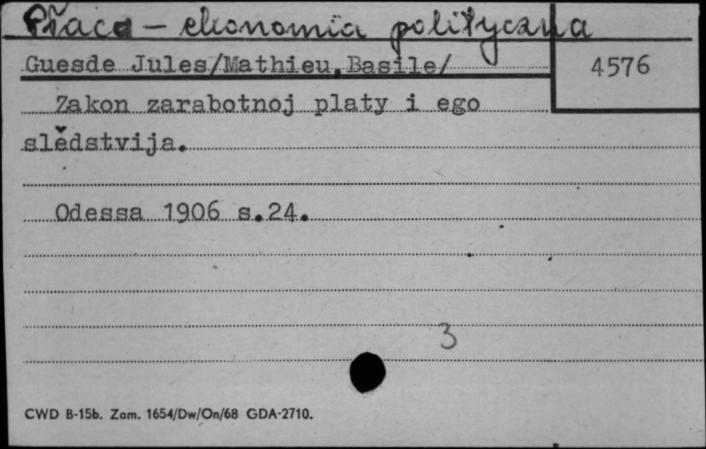 Płace – ekonomia polityczna
Guesde Jules/Mathieu,Basile/
4576
Zakon zarabotnoj platy i ego
slědstvija.
Odessa 1906 s.24.
3
CWD B-15b. Zam. 1654/Dw/On/68 GDA-2710.